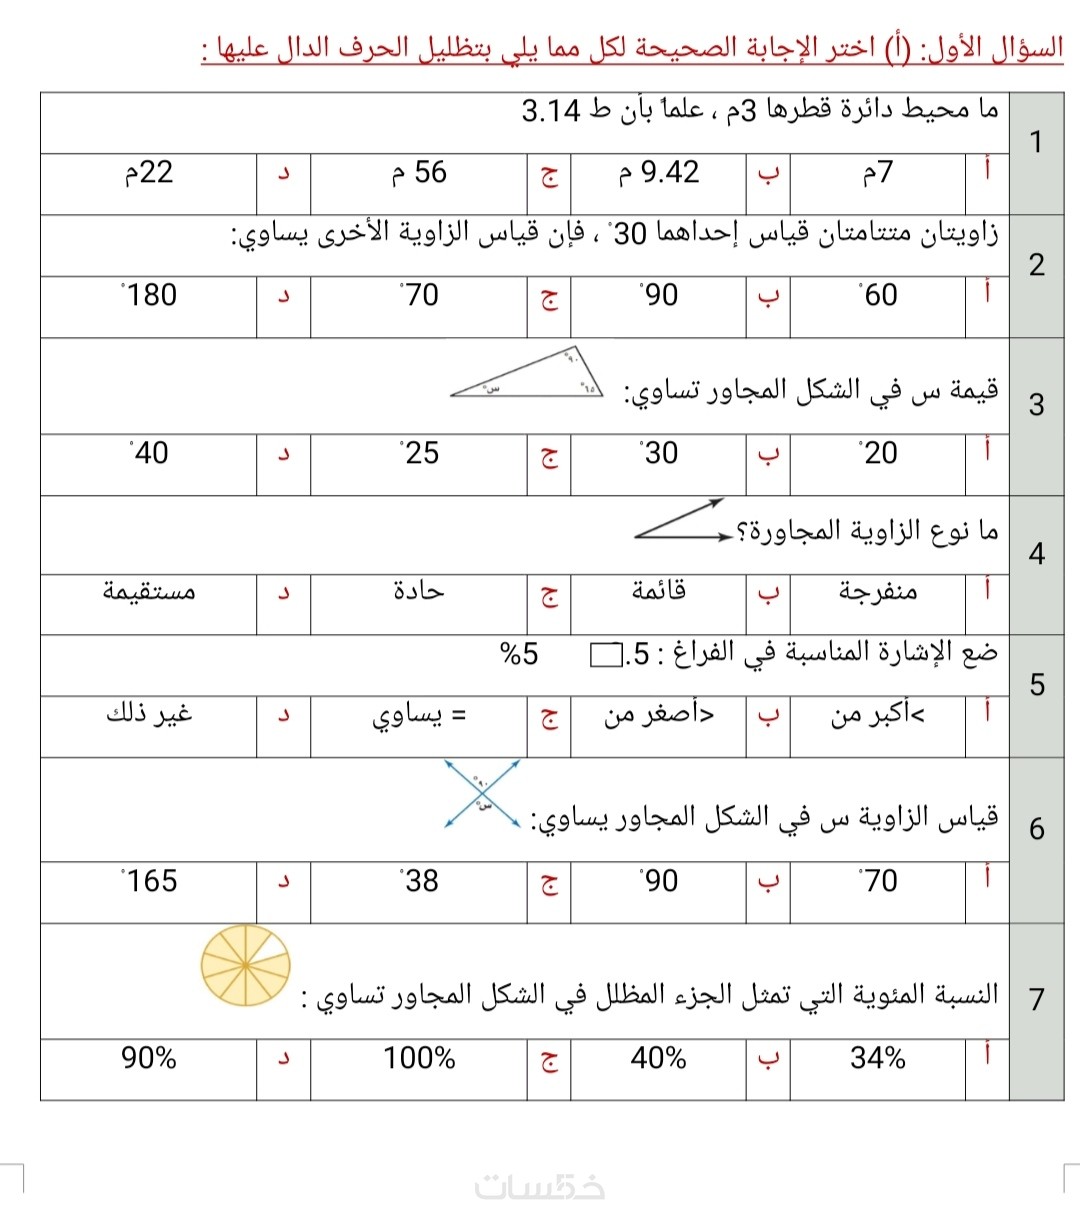 السؤال الأول: (أ) اختر الإجابة الصحيحة لكل مما يلي بتظليل الحرف الدال عليها :
1
ما محيط دائرة قطرها 3م ، علماً بأن ط 3.14
أ 7م ب 9.42 م ج 56 م د 22م
2
زاويتان متتامتان قياس إحداهما 30° ، فإن قياس الزاوية الأخرى يساوي:
أ 60° ب 90° ج 70° د 180°
3
قيمة س في الشكل المجاور تساوي:
٩٠°
٦٥°
س°
أ 20° ب 30° ج 25° د 40°
4
ما نوع الزاوية المجاورة؟
أ منفرجة ب قائمة ج حادة د مستقيمة
5
ضع الإشارة المناسبة في الفراغ : 5. □ 5%
أ >أكبر من ب <أصغر من ج = يساوي د غير ذلك
6
قياس الزاوية س في الشكل المجاور يساوي:
٩٠°
س°
أ 70° ب 90° ج 38° د 165°
7
النسبة المئوية التي تمثل الجزء المظلل في الشكل المجاور تساوي :
أ 34% ب 40% ج 100% د 90%
خمسات